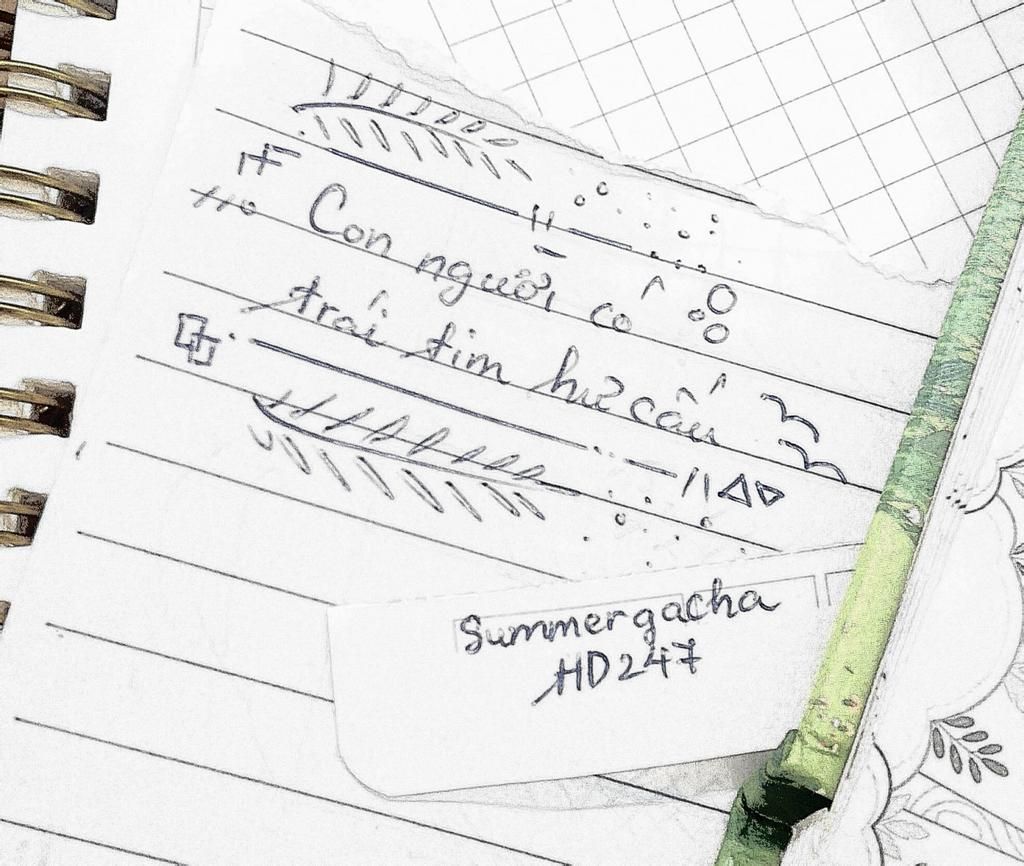 Con người có
trái tim hư cấu
Summergacha
HD247